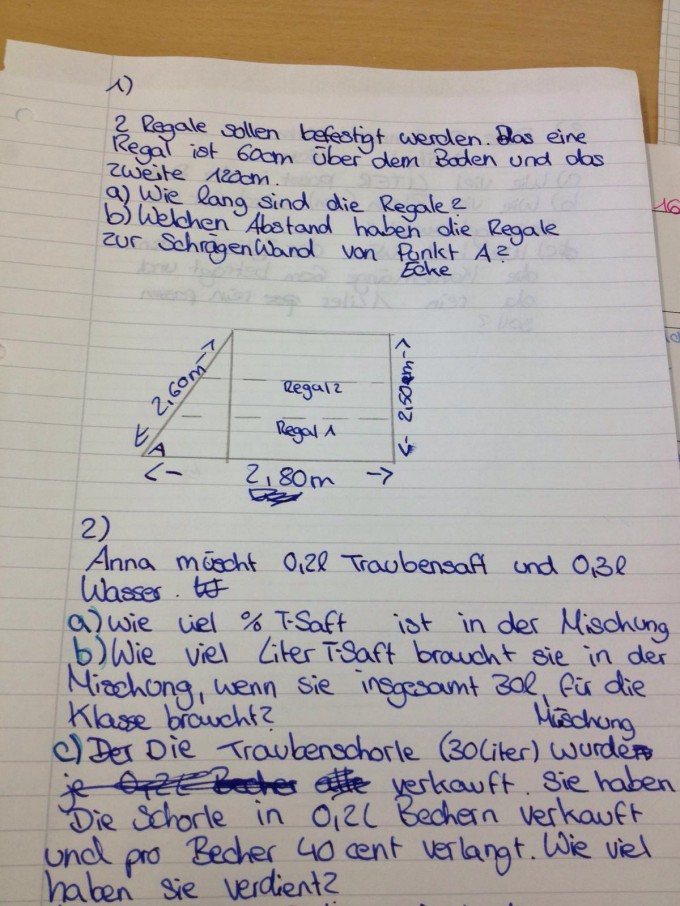 1)
2 Regale sollen befestigt werden. Das eine
Regal ist 60cm über dem Boden und das
zweite 120cm.
a) Wie lang sind die Regale?
b) Welchen Abstand haben die Regale
zur Schrägen Wand von Punkt A?
Ecke
2,60m
Regal 2
Regal 1
2,50m
A
2,80m
2)
Anna mischt 0,2l Traubensaft und 0,3l
Wasser.
a) Wie viel % T-Saft ist in der Mischung
b) Wie viel Liter T-Saft braucht sie in der
Mischung, wenn sie insgesamt 30l für die
Klasse braucht? Mischung
c) Der Die Traubenschorle (30Liter) wurde
je 0,2l Becher alle verkauft. Sie haben
Die Schorle in 0,2l Bechern verkauft
und pro Becher 40 cent verlangt. Wie viel
haben sie verdient?